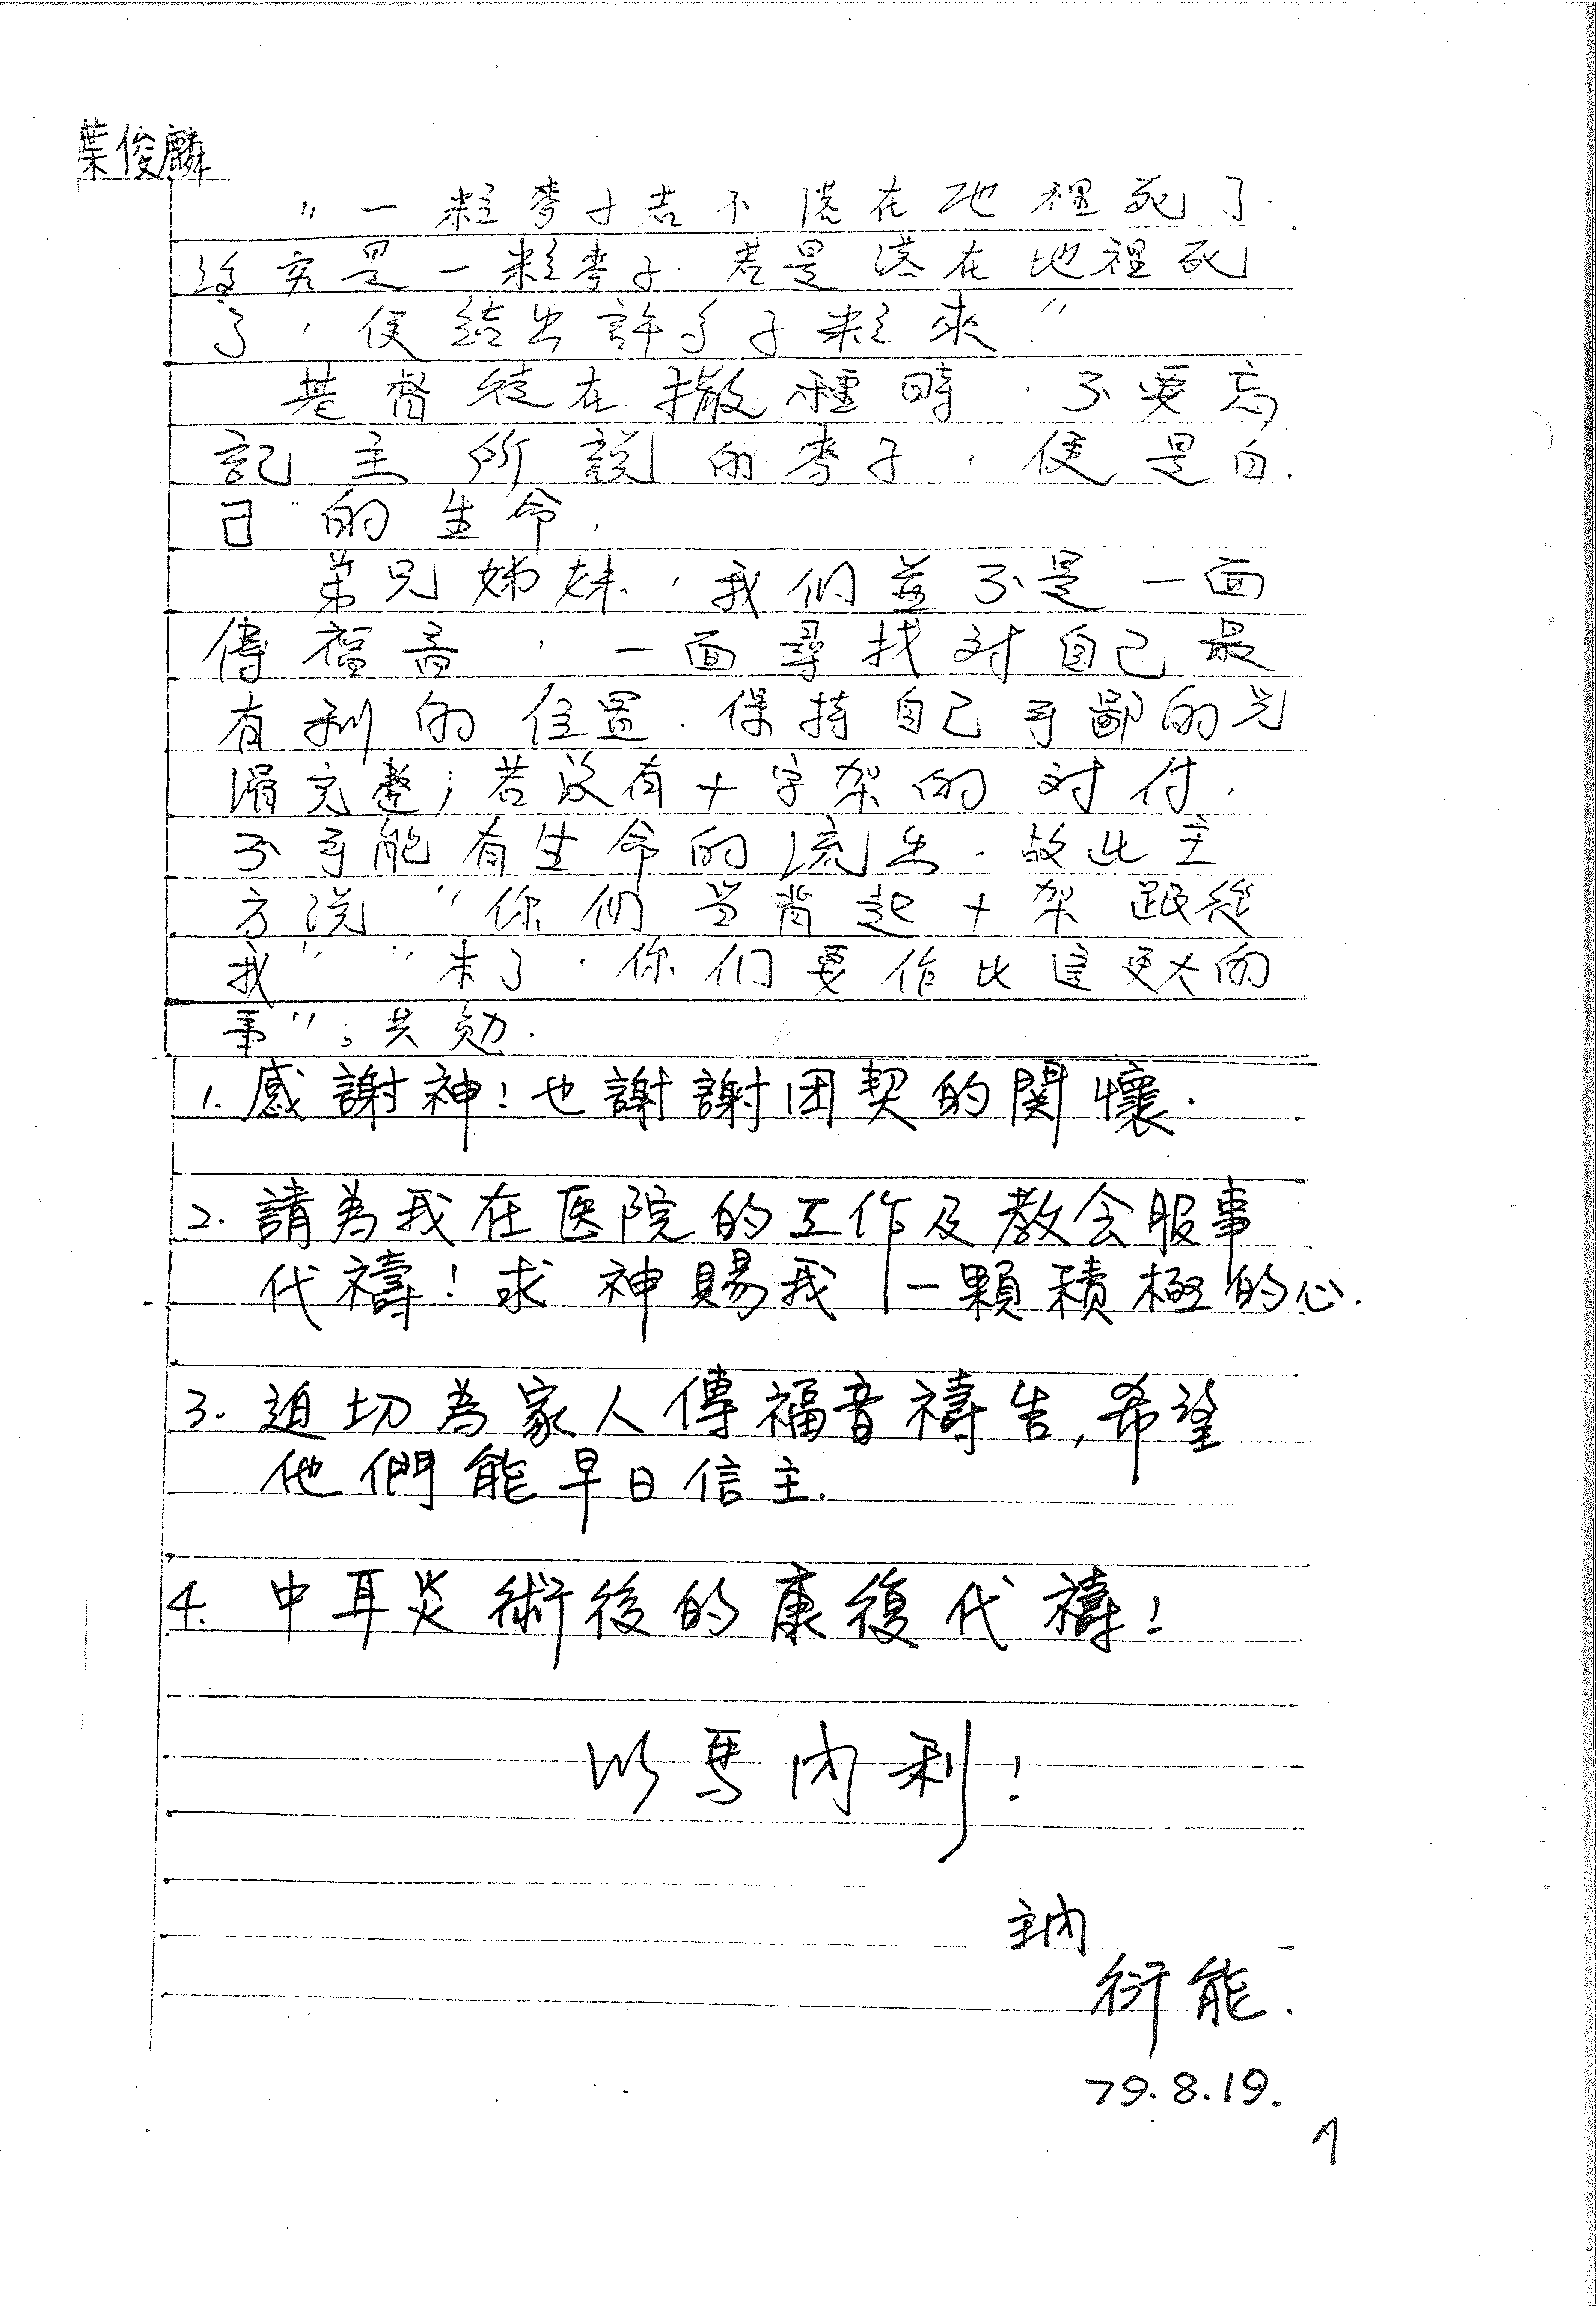 葉俊麟
"一粒麥子若不落在地裡死了.
終究是一粒麥子.若是落在地裡死
了,便結出許多子粒來."
基督徒在撒種時.不要忘
記主所說的麥子,便是自
己的生命.
弟兄姊妹,我们並不是一面
傳福音,一面尋找对自己最
有利的位置.保持自己可鄙的光
滑完整;若沒有十字架的对付,
不可能有生命的流出.故此主
方説"你们當背起十架跟從
我""末了.你们要作比這更大的
事";共勉.
1.感謝神!也謝謝团契的関懷.
2.請為我在医院的工作及教会服事
代禱!求神賜我一顆積極的心.
3.迫切為家人傳福音禱告,希望
他們能早日信主.
4.中耳炎術後的康復代禱!
以馬內利!
主內
衍能.
79.8.19.